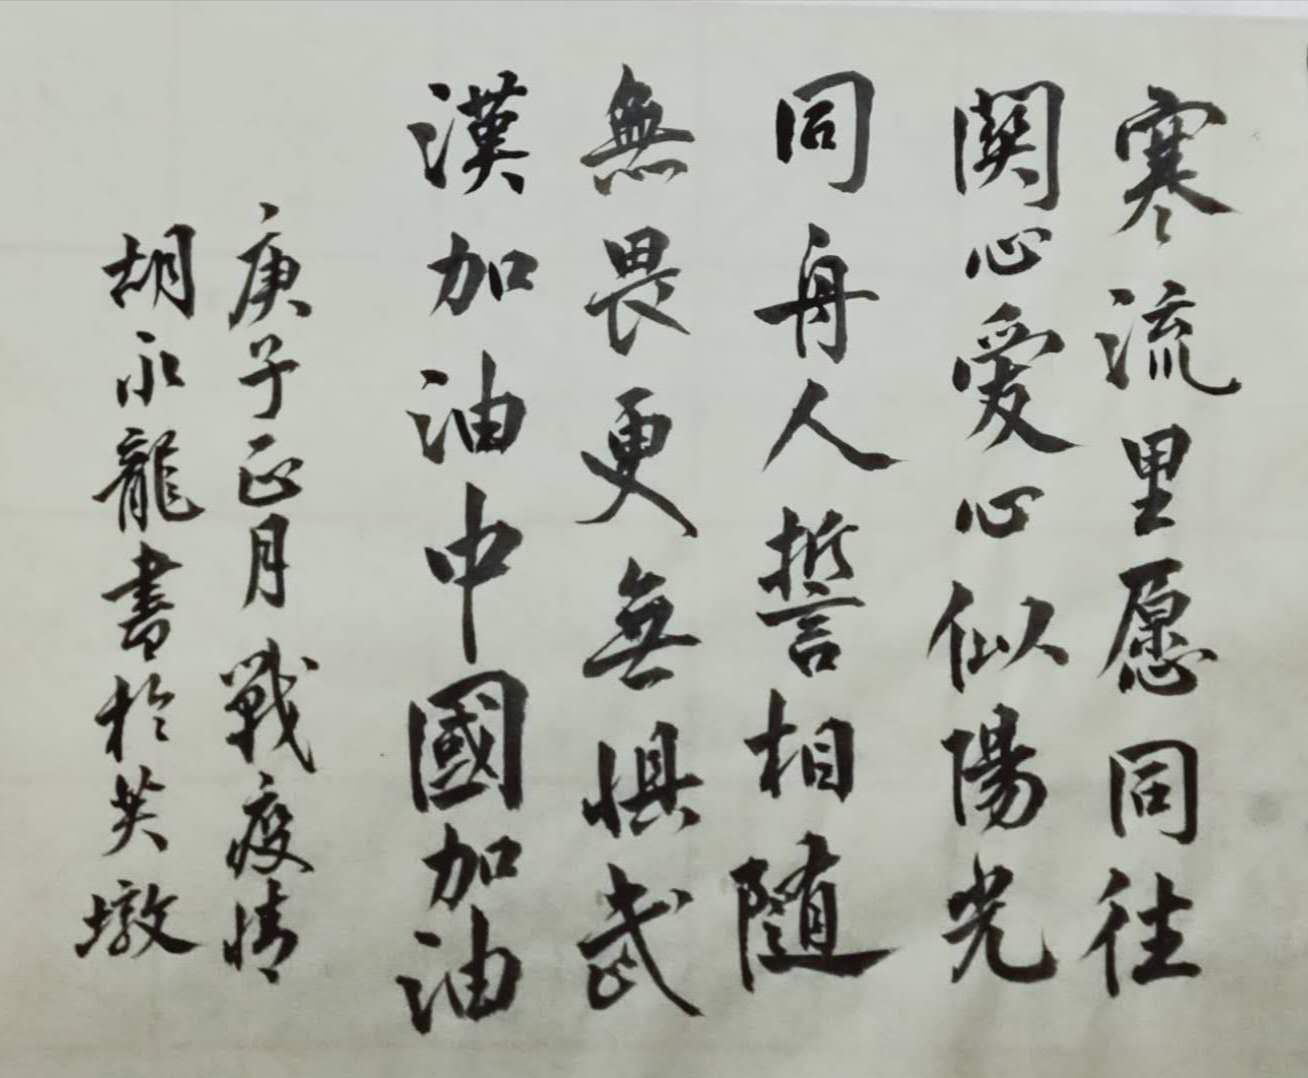 寒流里愿同往
関心愛心似陽光
同舟人誓相隨
無畏更無惧武
漢加油中國加油
庚子正月戰疫情
胡永龍書於英墩